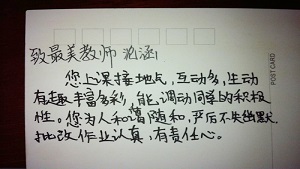 POST CARD
致最美教师 沁涵
您上课接地气，互动多，生动
有趣丰富多彩，能调动同学的积极
性。您为人和蔼随和，严厉不失幽默.
批改作业认真，有责任心。